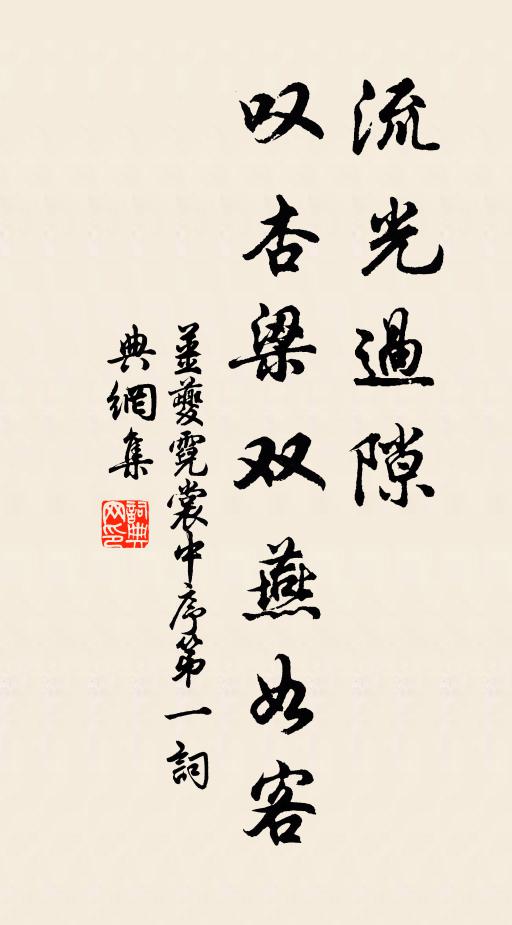 流光過隙
叹杏梁双燕如客
姜夔霓裳中序第一詞
典網集
詞典
网印